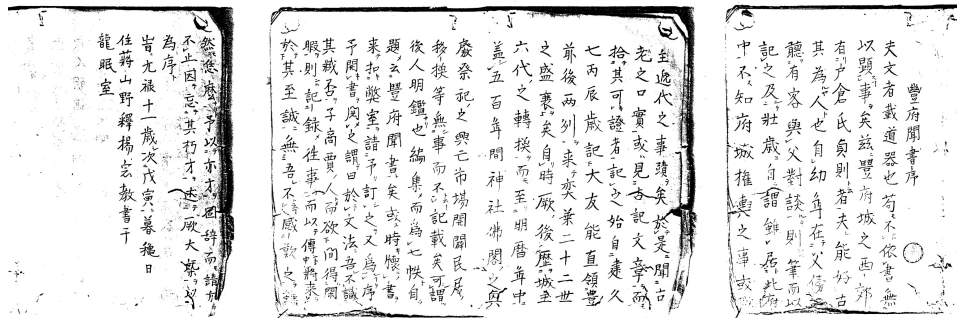 豐府聞書序
夫文者載道器也苟不依書無
以顕事矣茲豐府城之西郊
有戸倉氏貞則者夫能好古
其為人也自幼年在父傍
聽有客與父對談則筆而以
記之及壮歳自謂雖居此府
中不知府城權輿之事或
至近代之事頭矣於是聞古
老之口實或見古記文章而
拾其可證者記之始自建久
七丙辰歳記大友能直領豊
前後両列来亦葉二十二世
之盛衰矣自時厥後歴城主
六代之轉換而至明暦年中
蓋五百年間神社佛閣之興
廢祭祀之興亡市場開闢民居
移換等無事而不記載矣可謂
後人明鑑也編集而為七帙自
題云豐府聞書矣或時懷書
来扣弊室請予訂之又為序
予閲書関之謂曰於文法吾不識
其哉否子商賈人而欲伺得閑
暇則記録往事而以傳中將来
於其至誠無吾不感歎之
然焦麼予以不才固辞而請
不止因忘其朽才述厥大槩以
為序
旹元禄十一歳次戊寅暮穐日
住蒋山野釋楊宏敖書于
龍眠室